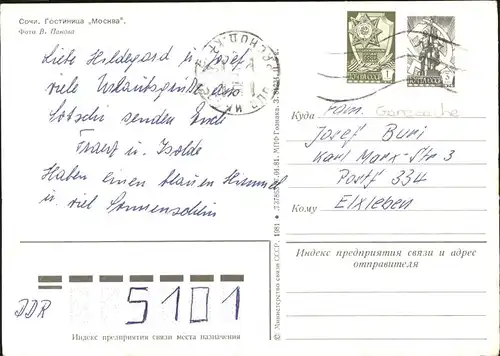 Сочи. Гостиница „Москва“.
Фото В. Панова
Liebe Hildegard u. Josef
viele Urlaubsgrüße aus
Sotschi senden Euch
u. Isolde
Haben einen blauen Himmel
u. viel Sonnenschein
DDR
5101
Индекс предприятия связи места назначения
© Министерство связи СССР. 1981
МПФ Гознака.
Куда
Fam.
Josef Buri
Karl Marx-Str 3
Postf 334
Кому
Elxleben
Индекс предприятия связи и адрес
отправителя